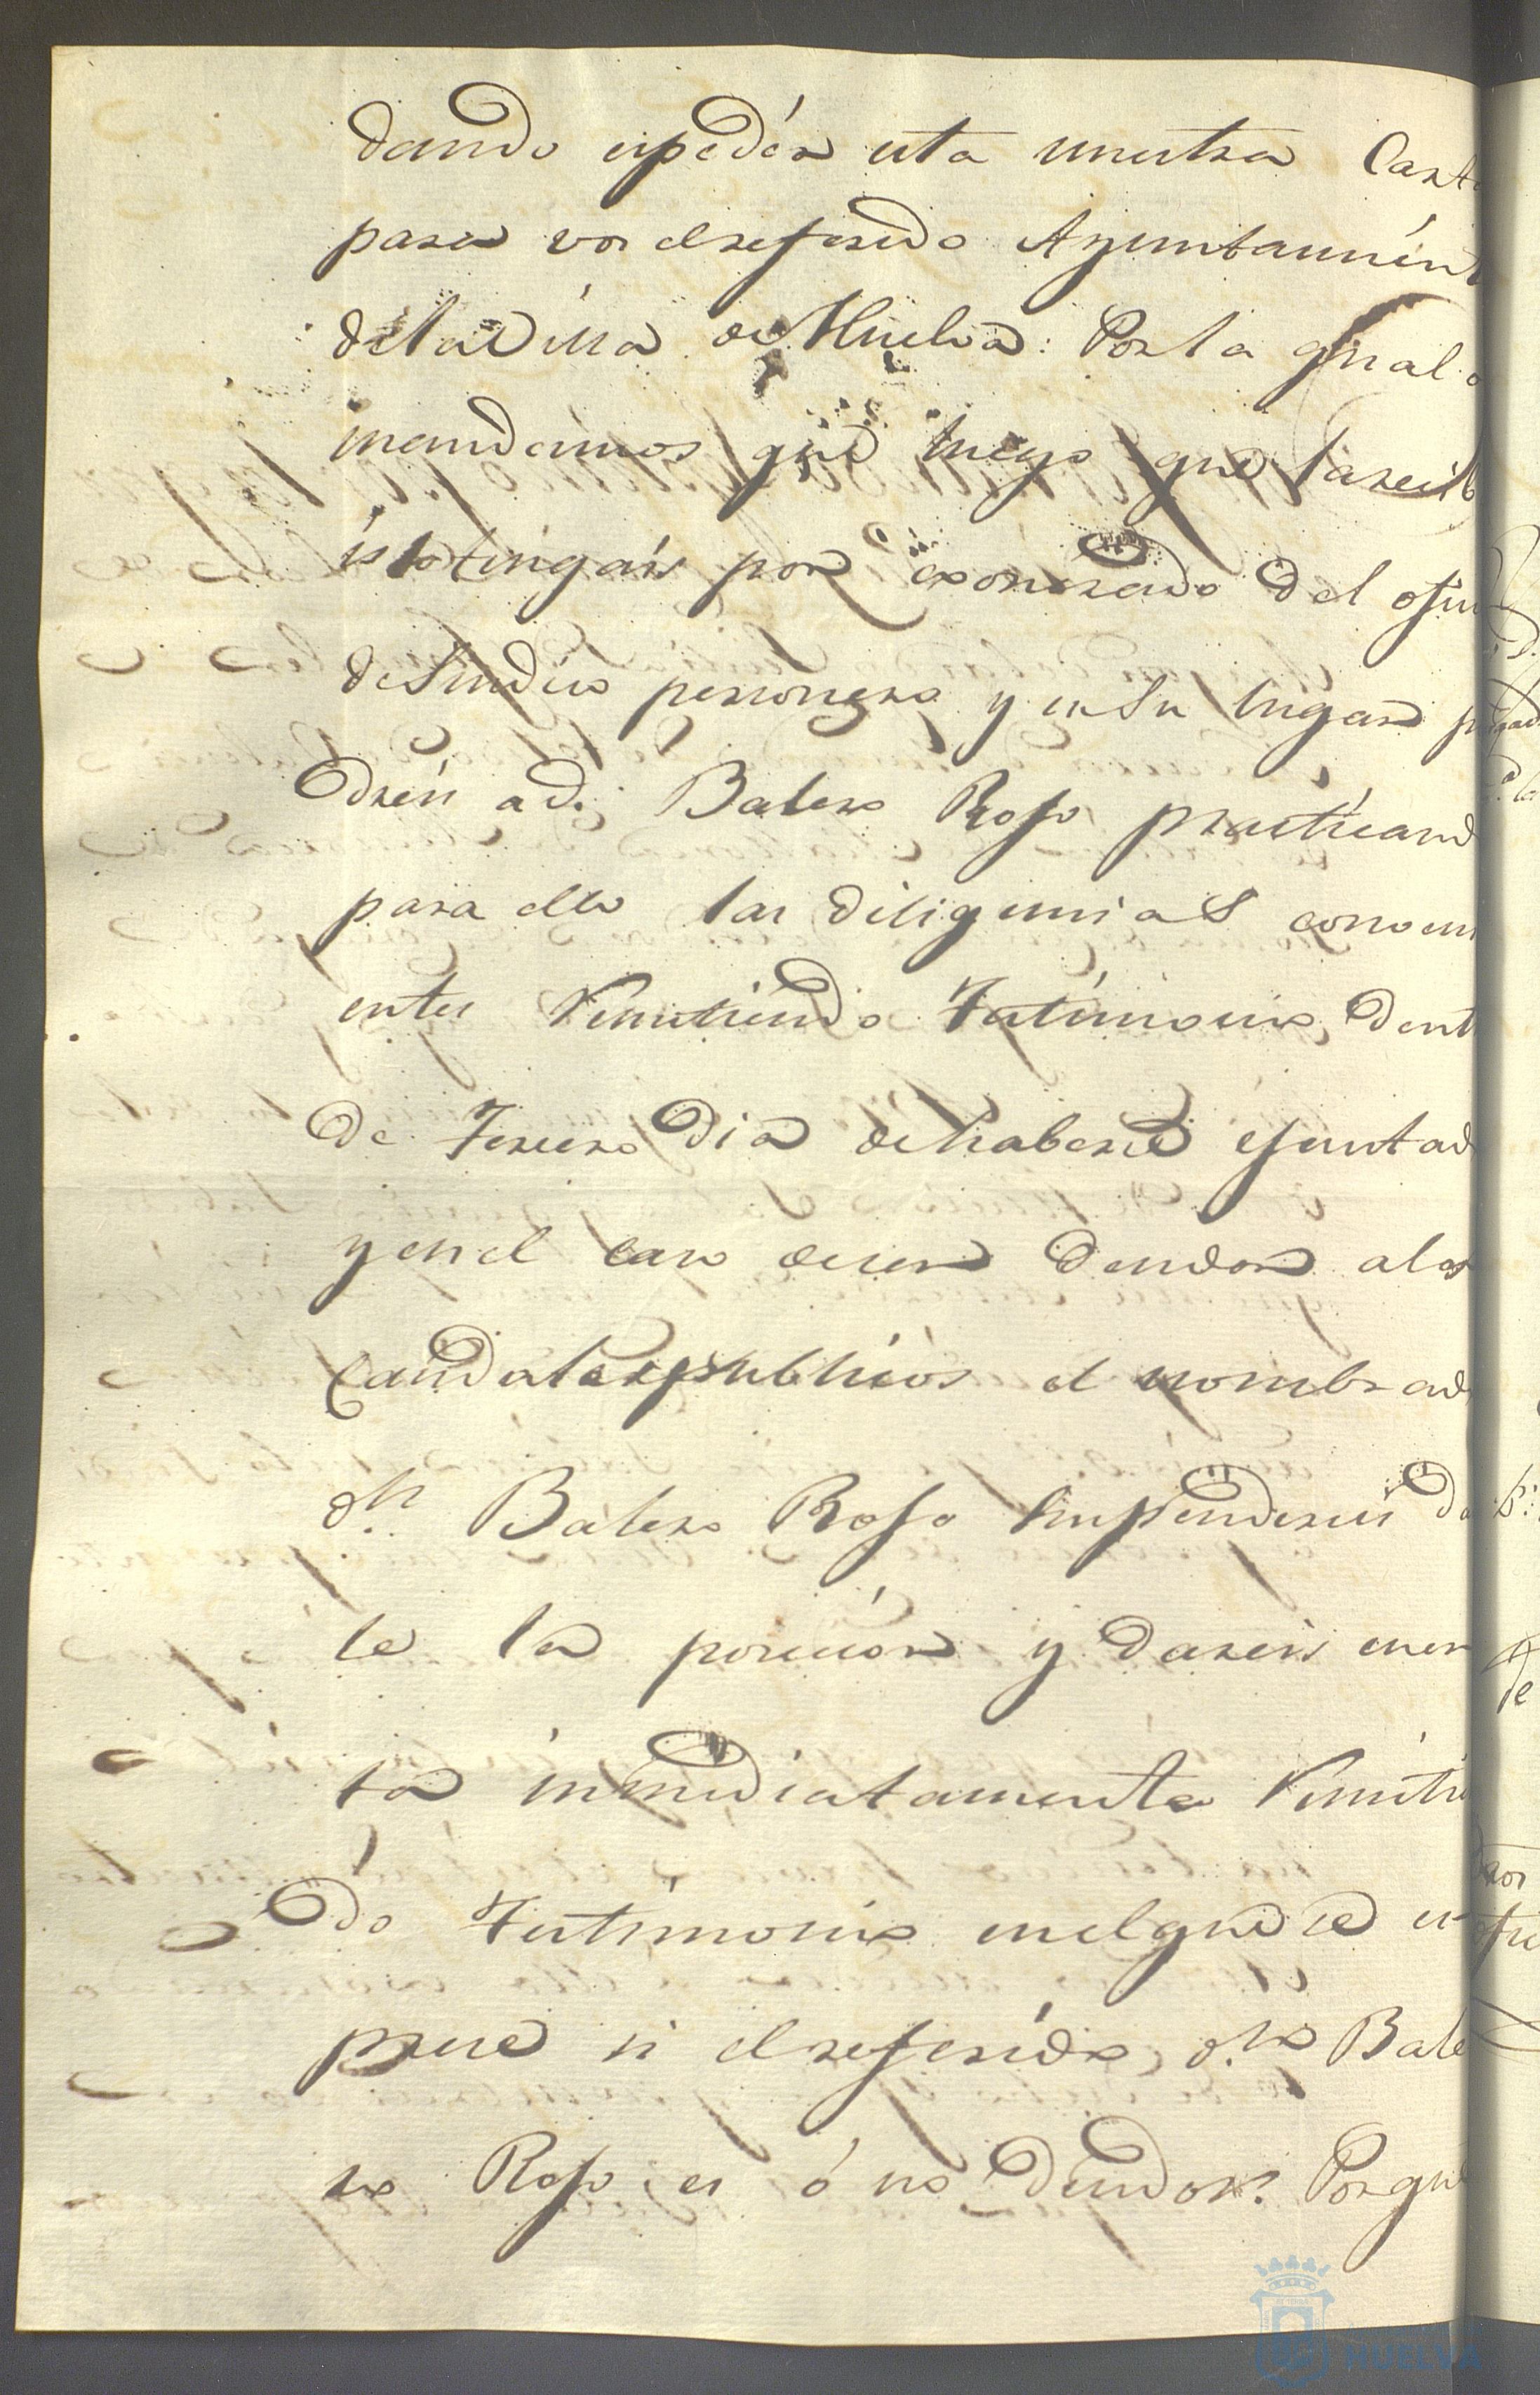 dando expedir esta nuestra Carta
para vos el referido Ayuntamient
de la Villa de Huelva: Por la qual o
mandamos que luego que la recib
is tengais por exonerado del ofici
de Sindico personero y en su lugar p
dreis a dn. Balero Rofo practicand
para ello las diligencias conveni
entes Remitiendo Testimonio dent
de Tercero dia de haberse efectad
y en el caso de ser deudor a los
Caudales publicos el nombrad
dn. Balero Rofo suspendereis da
le la posecion y dareis cuen
ta inmediatamente Remitie
do Testimonio en el que se ex
prese si el referido dn. Bale
ro Rofo es ó no deudor. Porque
HUELVA